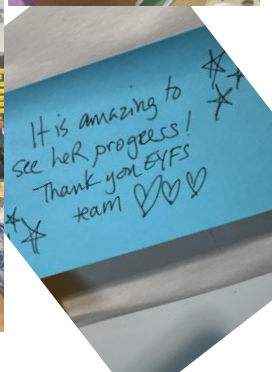 It is amazing to
see heR progress!
Thank you EYFS
team ♡♡♡